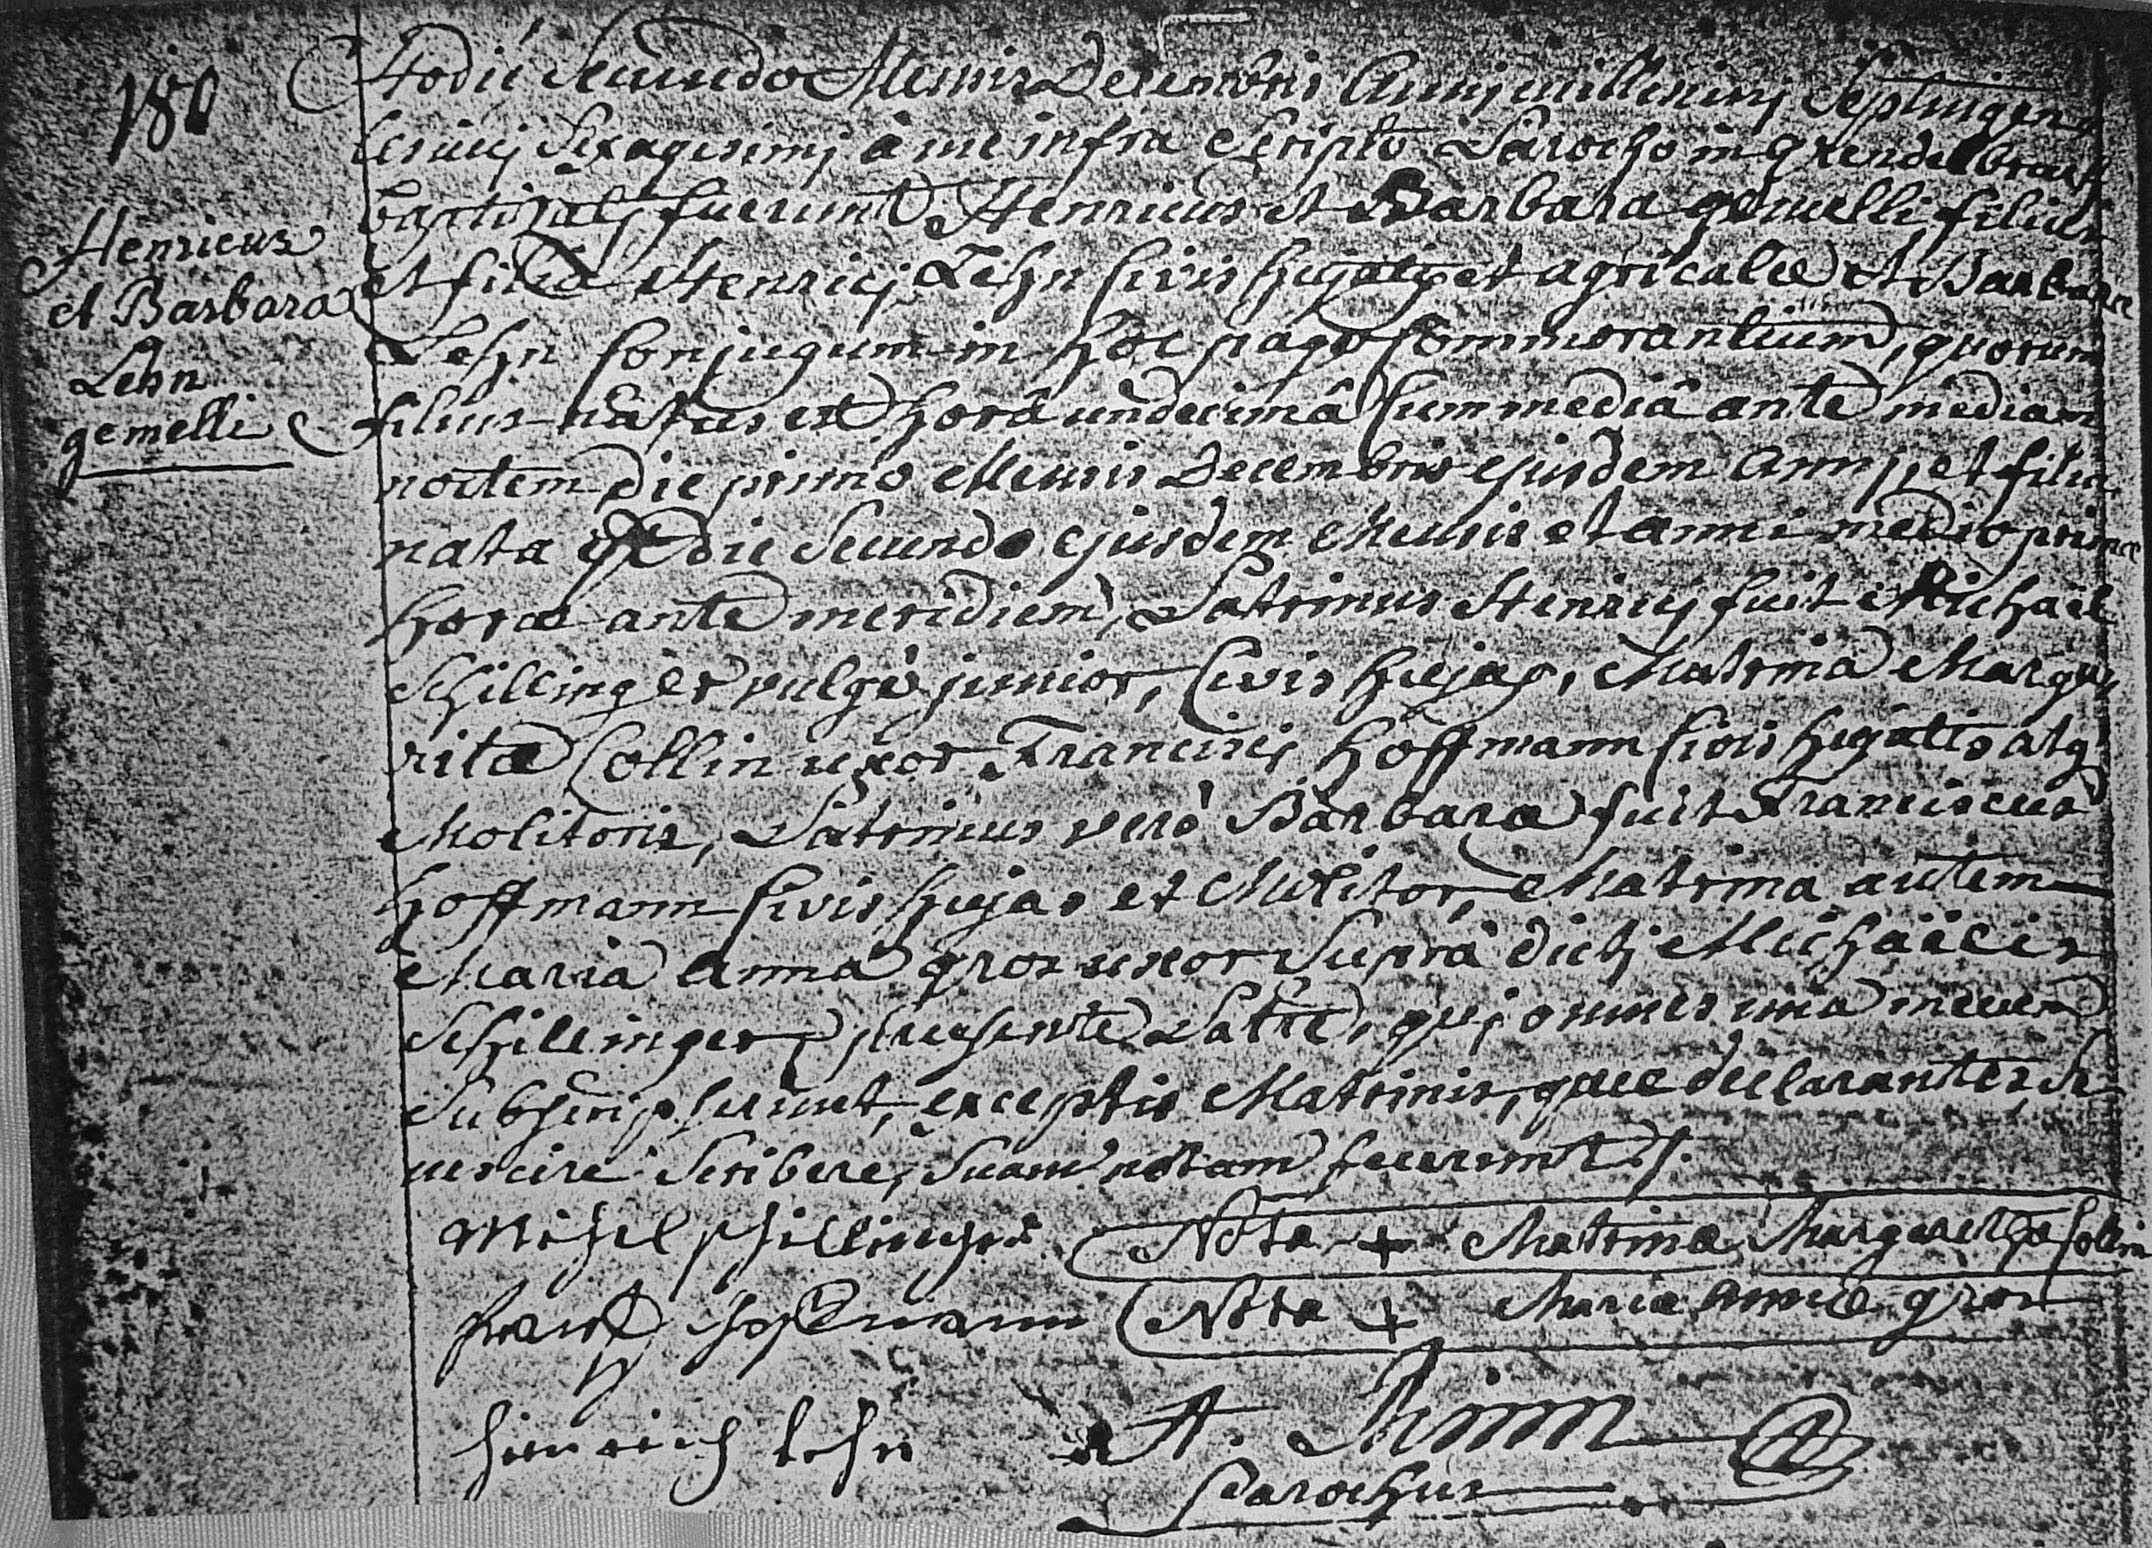 180
Henricus
et Barbara
Lehn
gemelli
Hodiè Secundo Mensis Decembris Annj millesimj Septingen-
tesimj Sexagesimj à me infra Scripto Parocho in grendelbruch
baptizatj fuerunt Henricus et Barbara gemelli, filius
et filia Henricj Lehn Civis hujatis et agricolae et Barbarae
Lehn Conjugum in hoc pago Commorantium, quorum
filius natus est horâ undecimâ Cum mediâ ante mediam
noctem die primo Mensis Decembris ejusdem Annj, et filia
nata est die Secundo ejusdem Mensis et anni medio primae
horae ante meridiem, Patrinus Henricj fuit Michael
Schillinger vulgò junior, Civis hujas, Matrina Marga-
rita Collin uxor Franciscj Hoffmann Civis hujatis atq
Molitoris, Patrinus verò Barbarae fuit Franciscus
Hoffmann Civis hujas et Molitor, Matrina autem
Maria Anna gros uxor Supra dictj Michaëlis
Schillinger, praesente Patre, quj omnes unà mecum
Subscripserunt, exceptis Matrinis, quae declarantes, Se
nescire Scribere, Suam notam fecerunt ./.
Michel schillinger Nota + Matrinae Margarethae Collin
frantz hoffmann Nota + Mariae Annae gros
heinrich lehn A. Rimm
Parochus